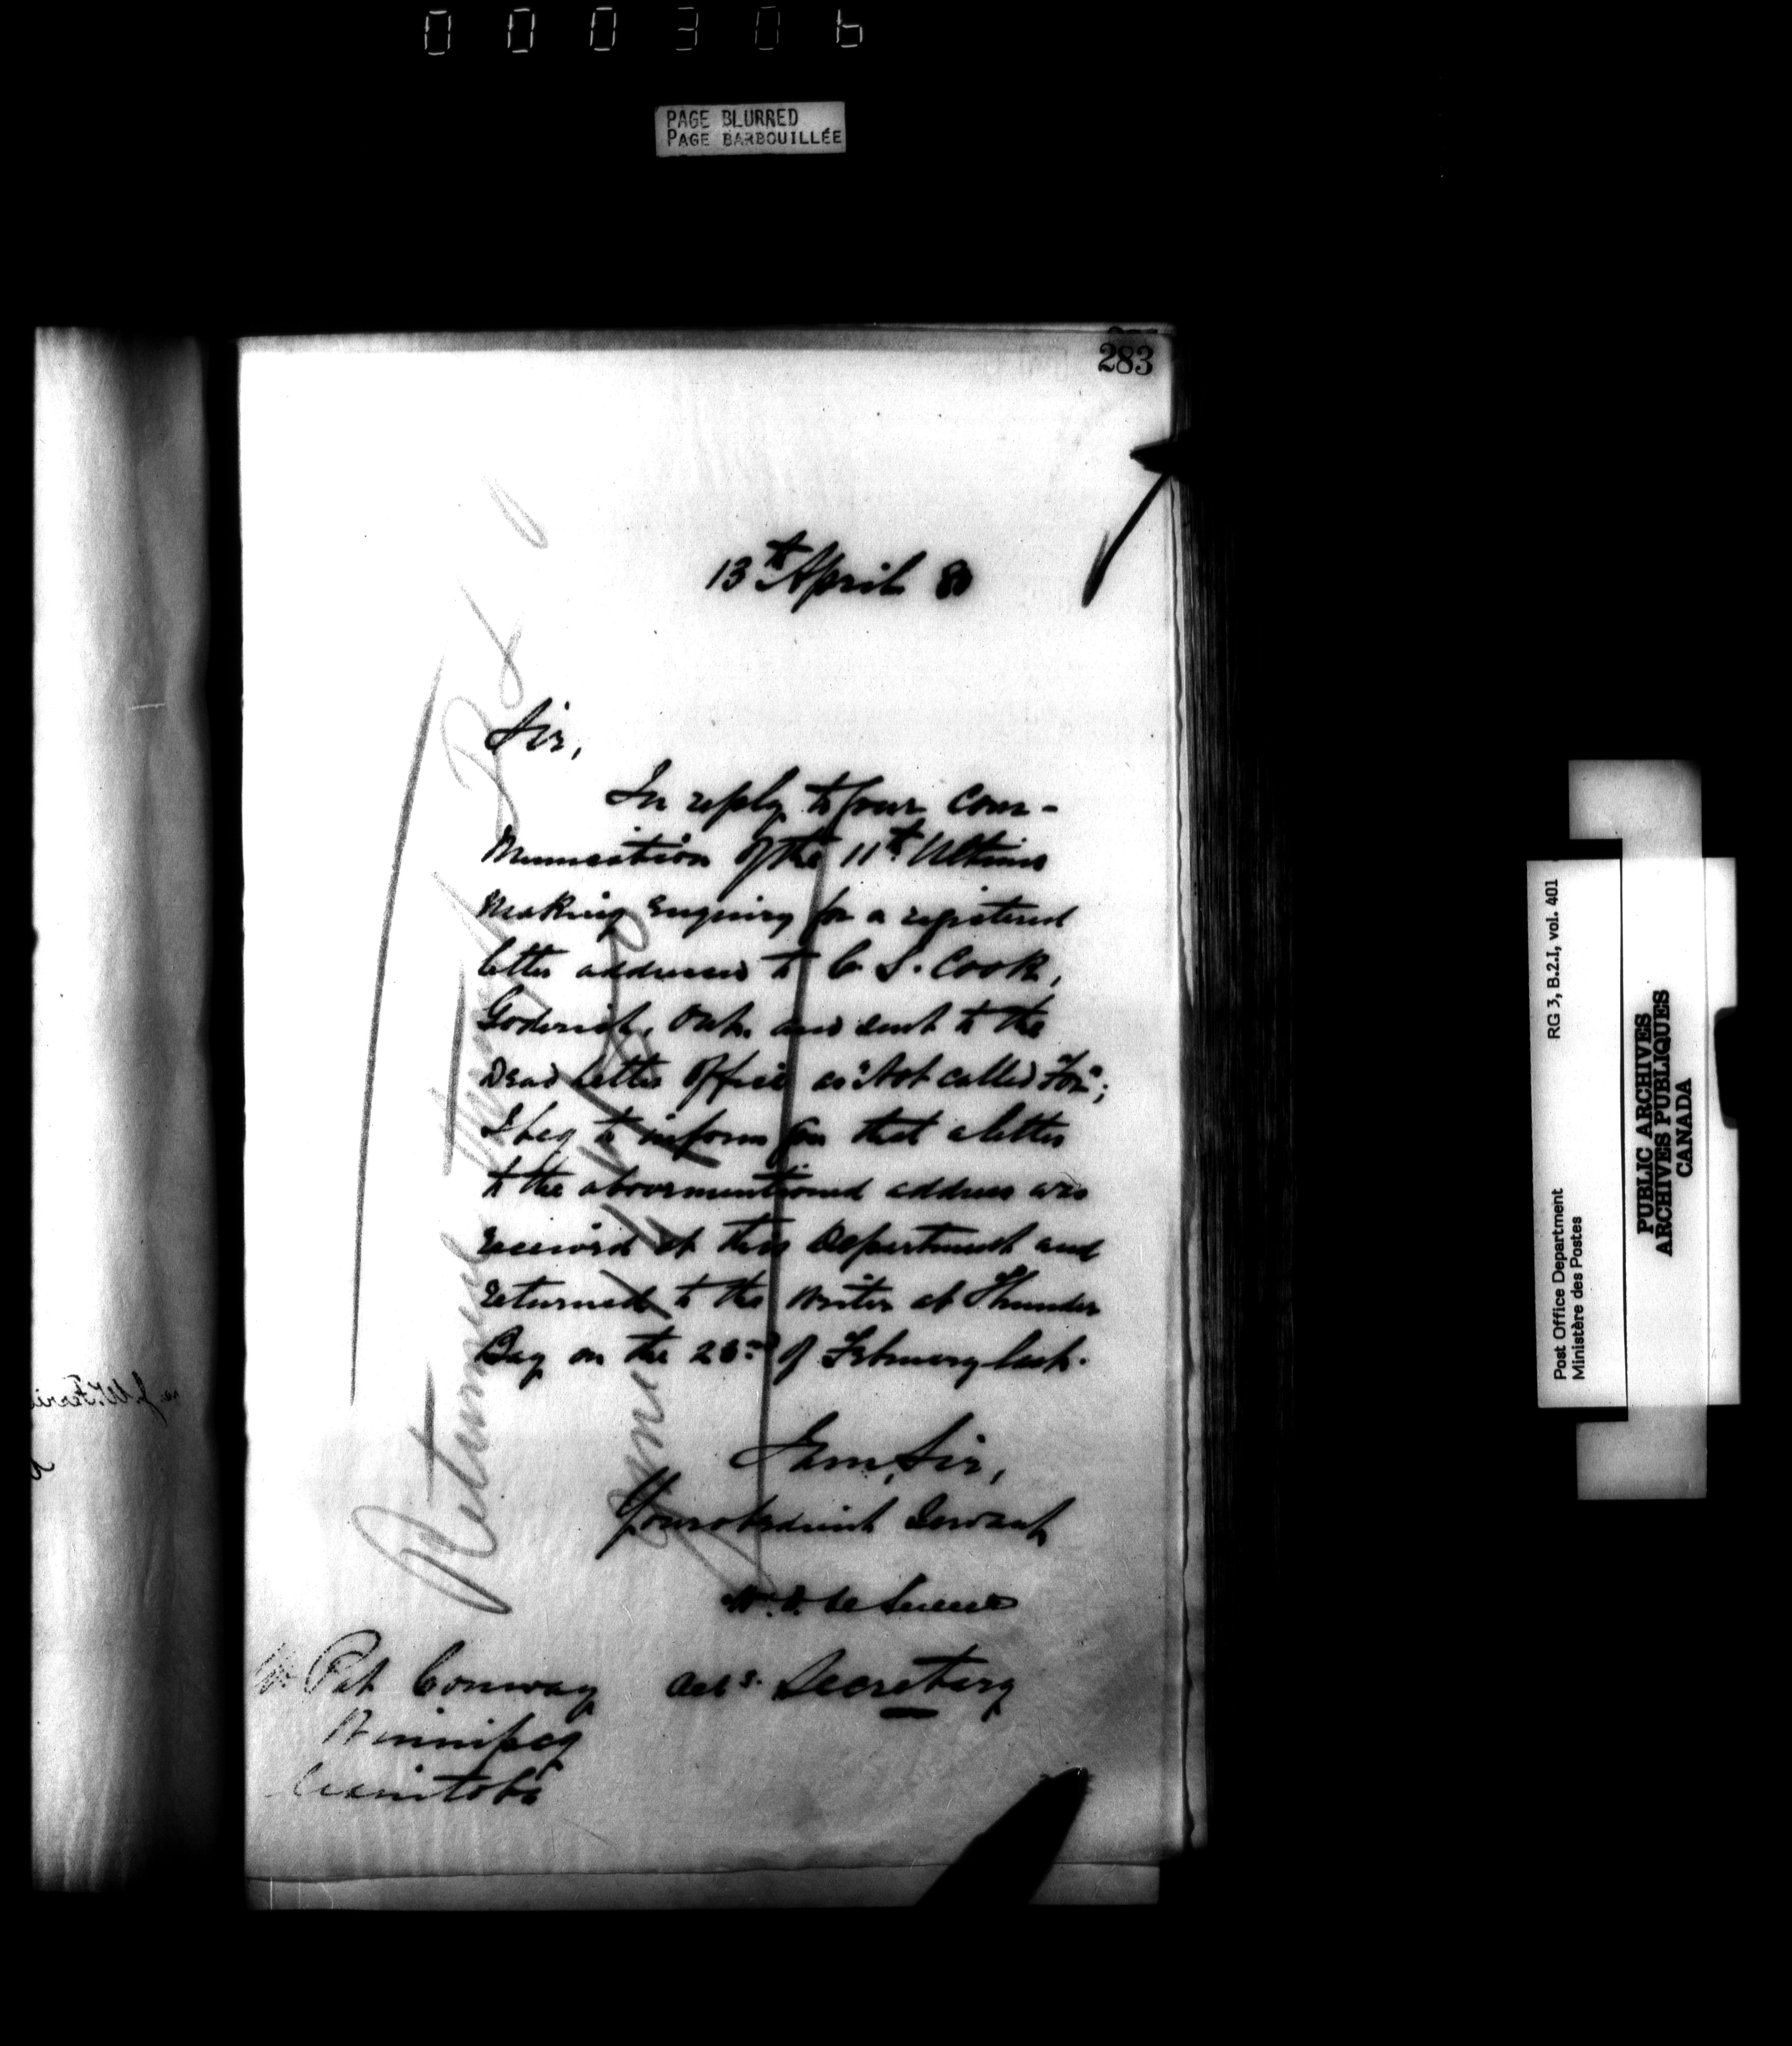 000306
PAGE BLURRED
PAGE BARBOUILLÉE
283
13th April 80
Sir,
In reply to your com-
munication of the 11th Ultimo
making enquiry for a registered
letter addressed to C. S. Cook,
Goderich, Ont. and sent to the
Dead Letter Office as "Not called For";
I beg to inform you that a letter
to the abovementioned address was
received at this Department and
returned to the writer at Thunder
Bay on the 23rd of February last.
I am, Sir,
Your obedient Servant
W. D. Le Sueur
for Secretary
Mr Pat Conway
Winnipeg
Manitoba
Returned
RG 3, B.2.I, vol. 401
Post Office Department
Ministère des Postes
PUBLIC ARCHIVES
ARCHIVES PUBLIQUES
CANADA